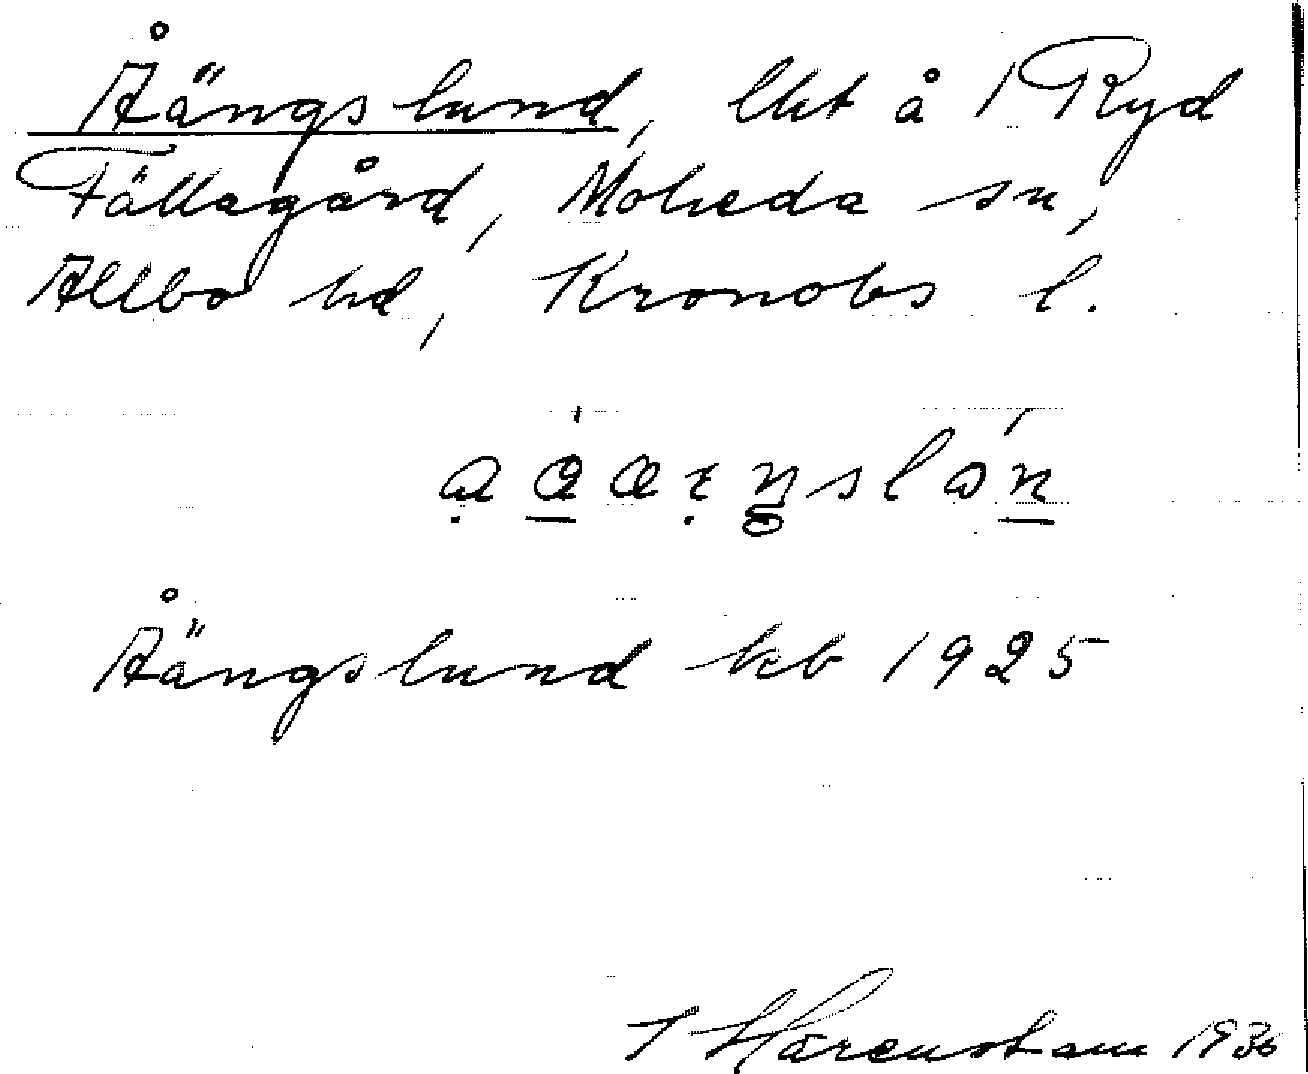 Åängslund, lht å 1 Ryd
Fällagård, Moheda sn,
Allbo hd, Kronobs l.
Åängslund kb 1925
T Härenstam 1936